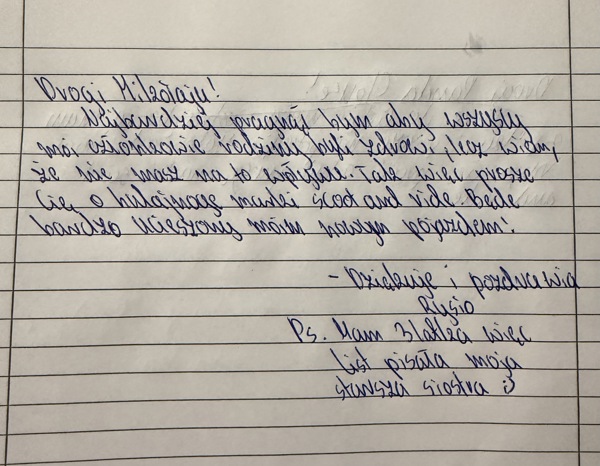 Drogi Mikołaju!
Najbardziej pragnął bym aby wszyscy
moi członkowie rodziny byli zdrowi, lecz wiem,
że nie masz na to wpływu. Tak więc prosze
Cię o hulajnogę marki scoot and ride. Będe
bardzo ucieszony moim nowym pojazdem!
- Dziękuje i pozdrawia
Rysio
Ps. Mam 3 latka więc
list pisała moja
starsza siostra :)